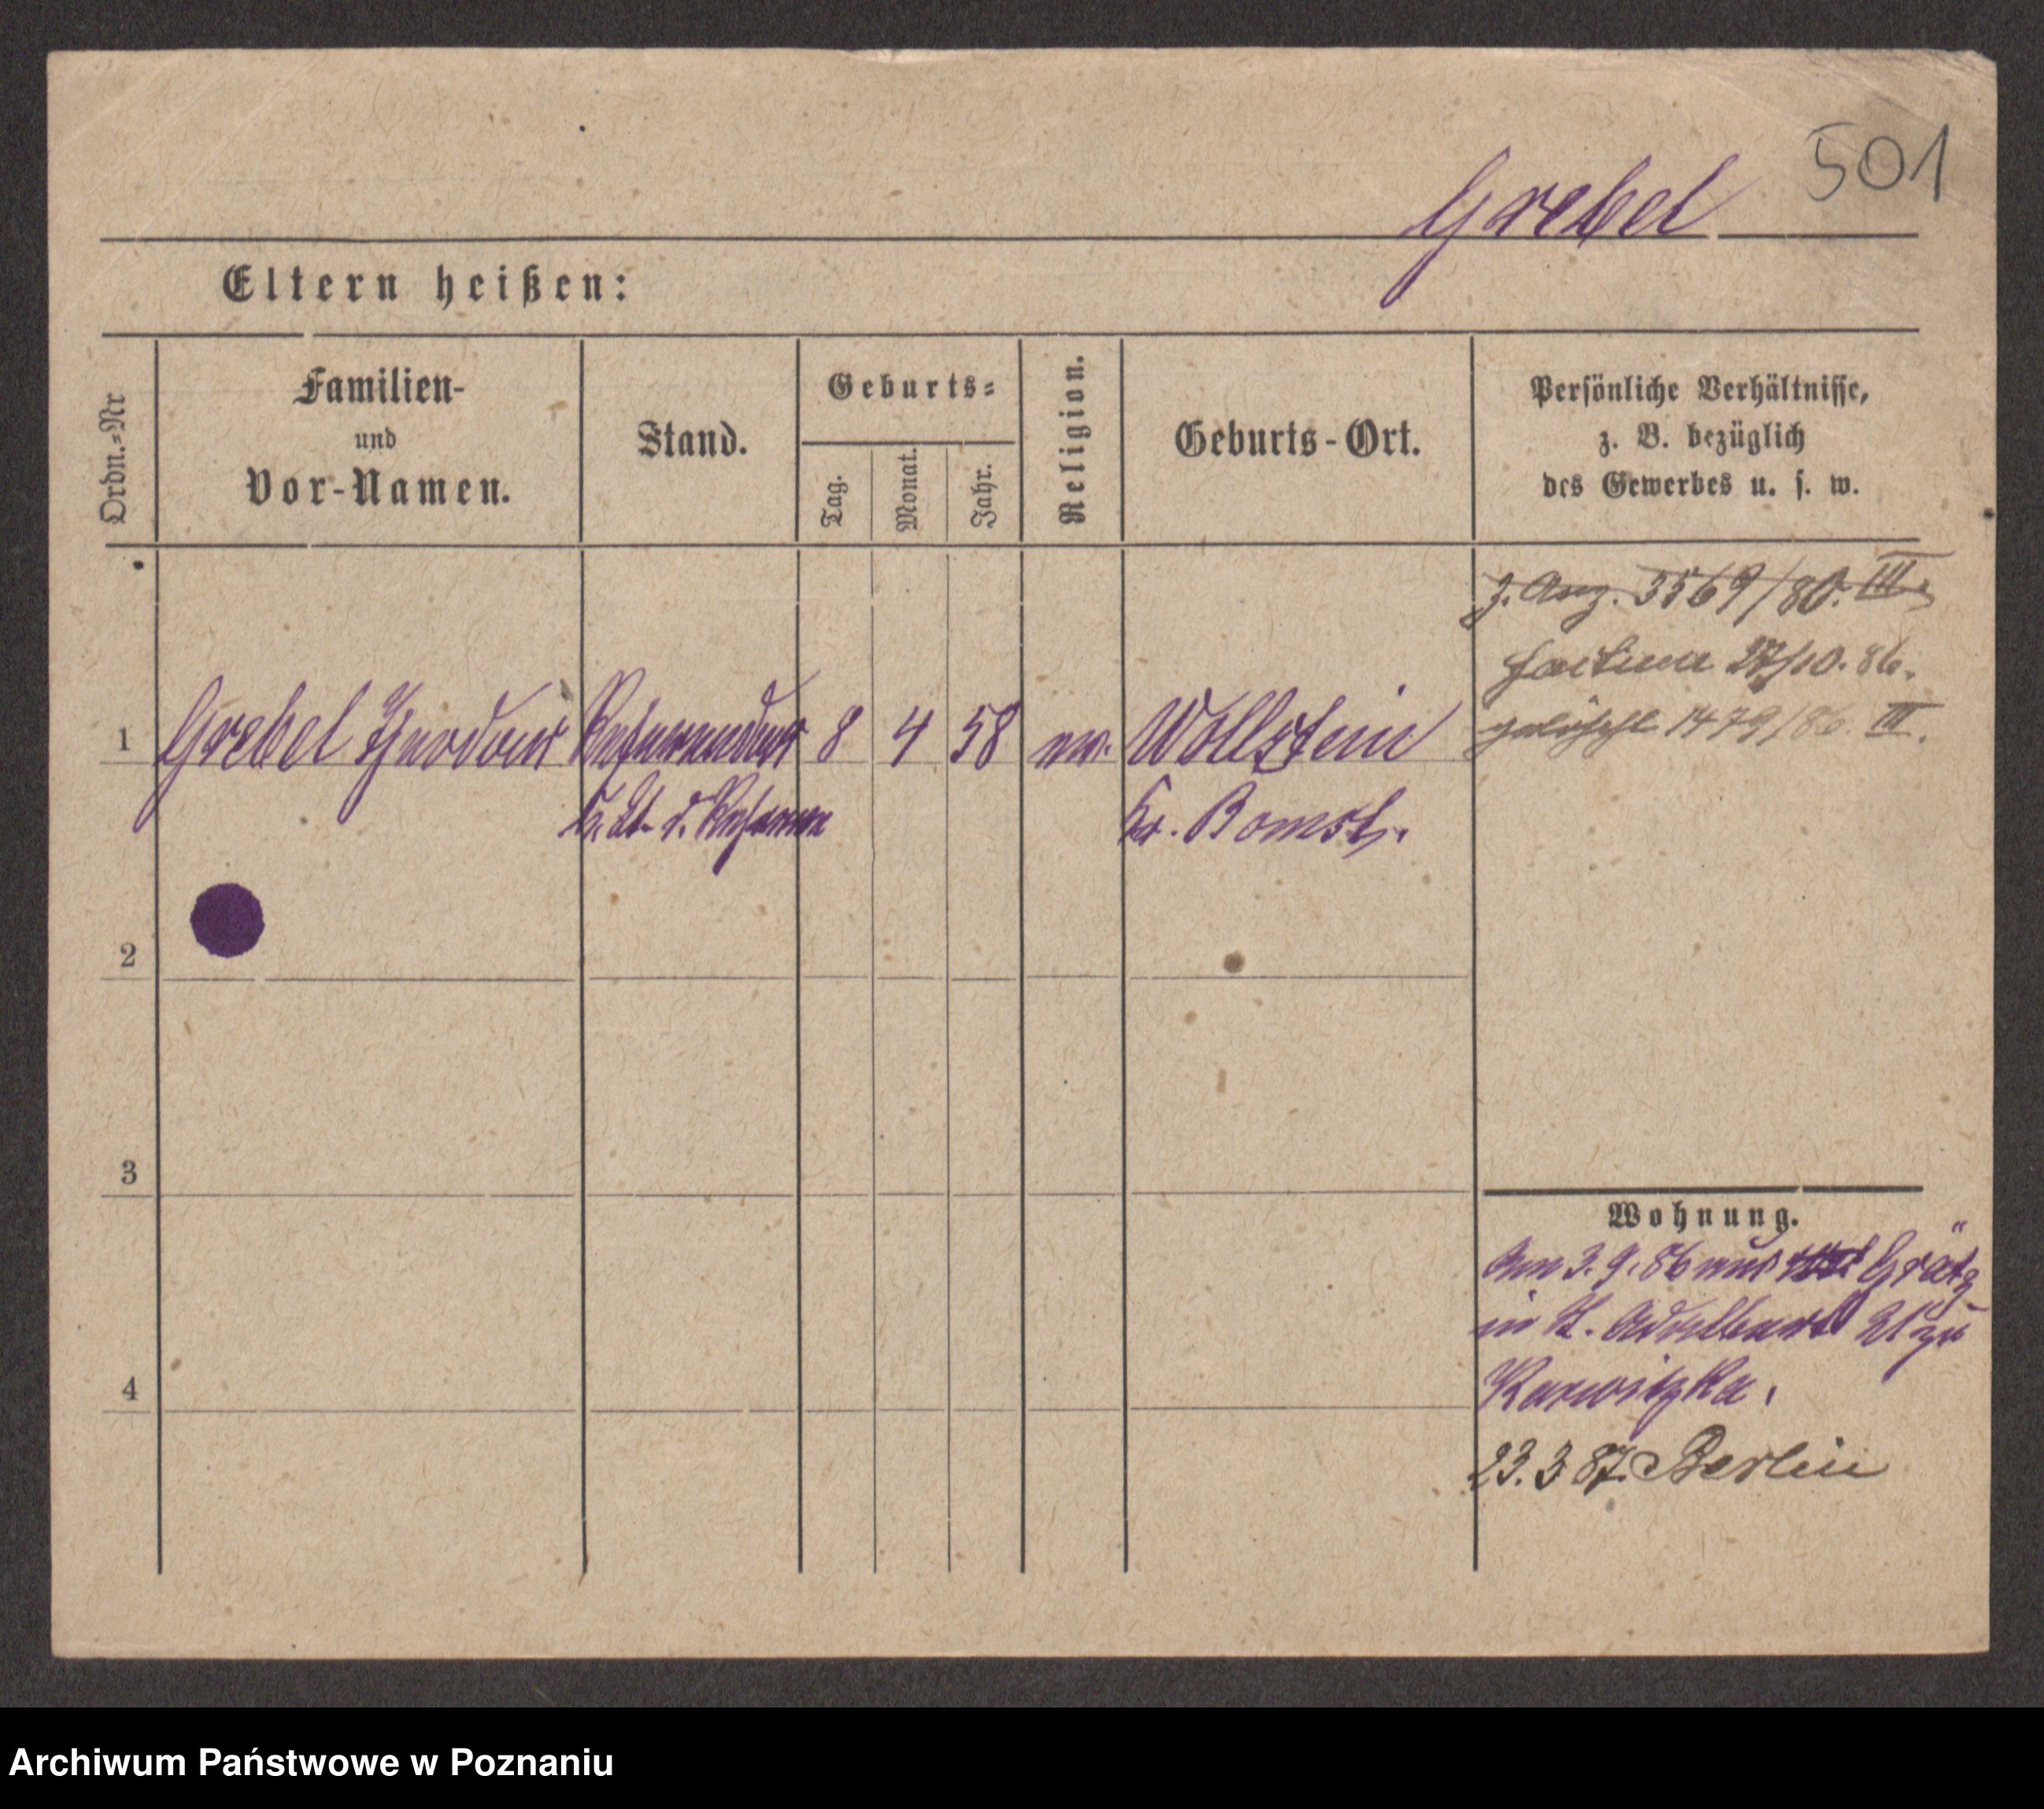 501
Grebel
Eltern heißen:
Ordn.=Nr
Familien-
und
Vor-Namen.
Stand.
Geburts=
Tag.
Monat.
Jahr.
Religion.
Geburts-Ort.
Persönliche Verhältnisse,
z. B. bezüglich
des Gewerbes u. s. w.
3569/80. III
27/10. 86.
gelöscht 1479/86. III.
1 Grebel Theodor Referendar 8 4 58 ev. Wollstein
d. Reserve Kr. Bomst.
2
3
4
Wohnung.
Am 3. 9. 86 aus Grätz
in St. Adalbert 21 zu
23. 3 87. Berlin
Archiwum Państwowe w Poznaniu